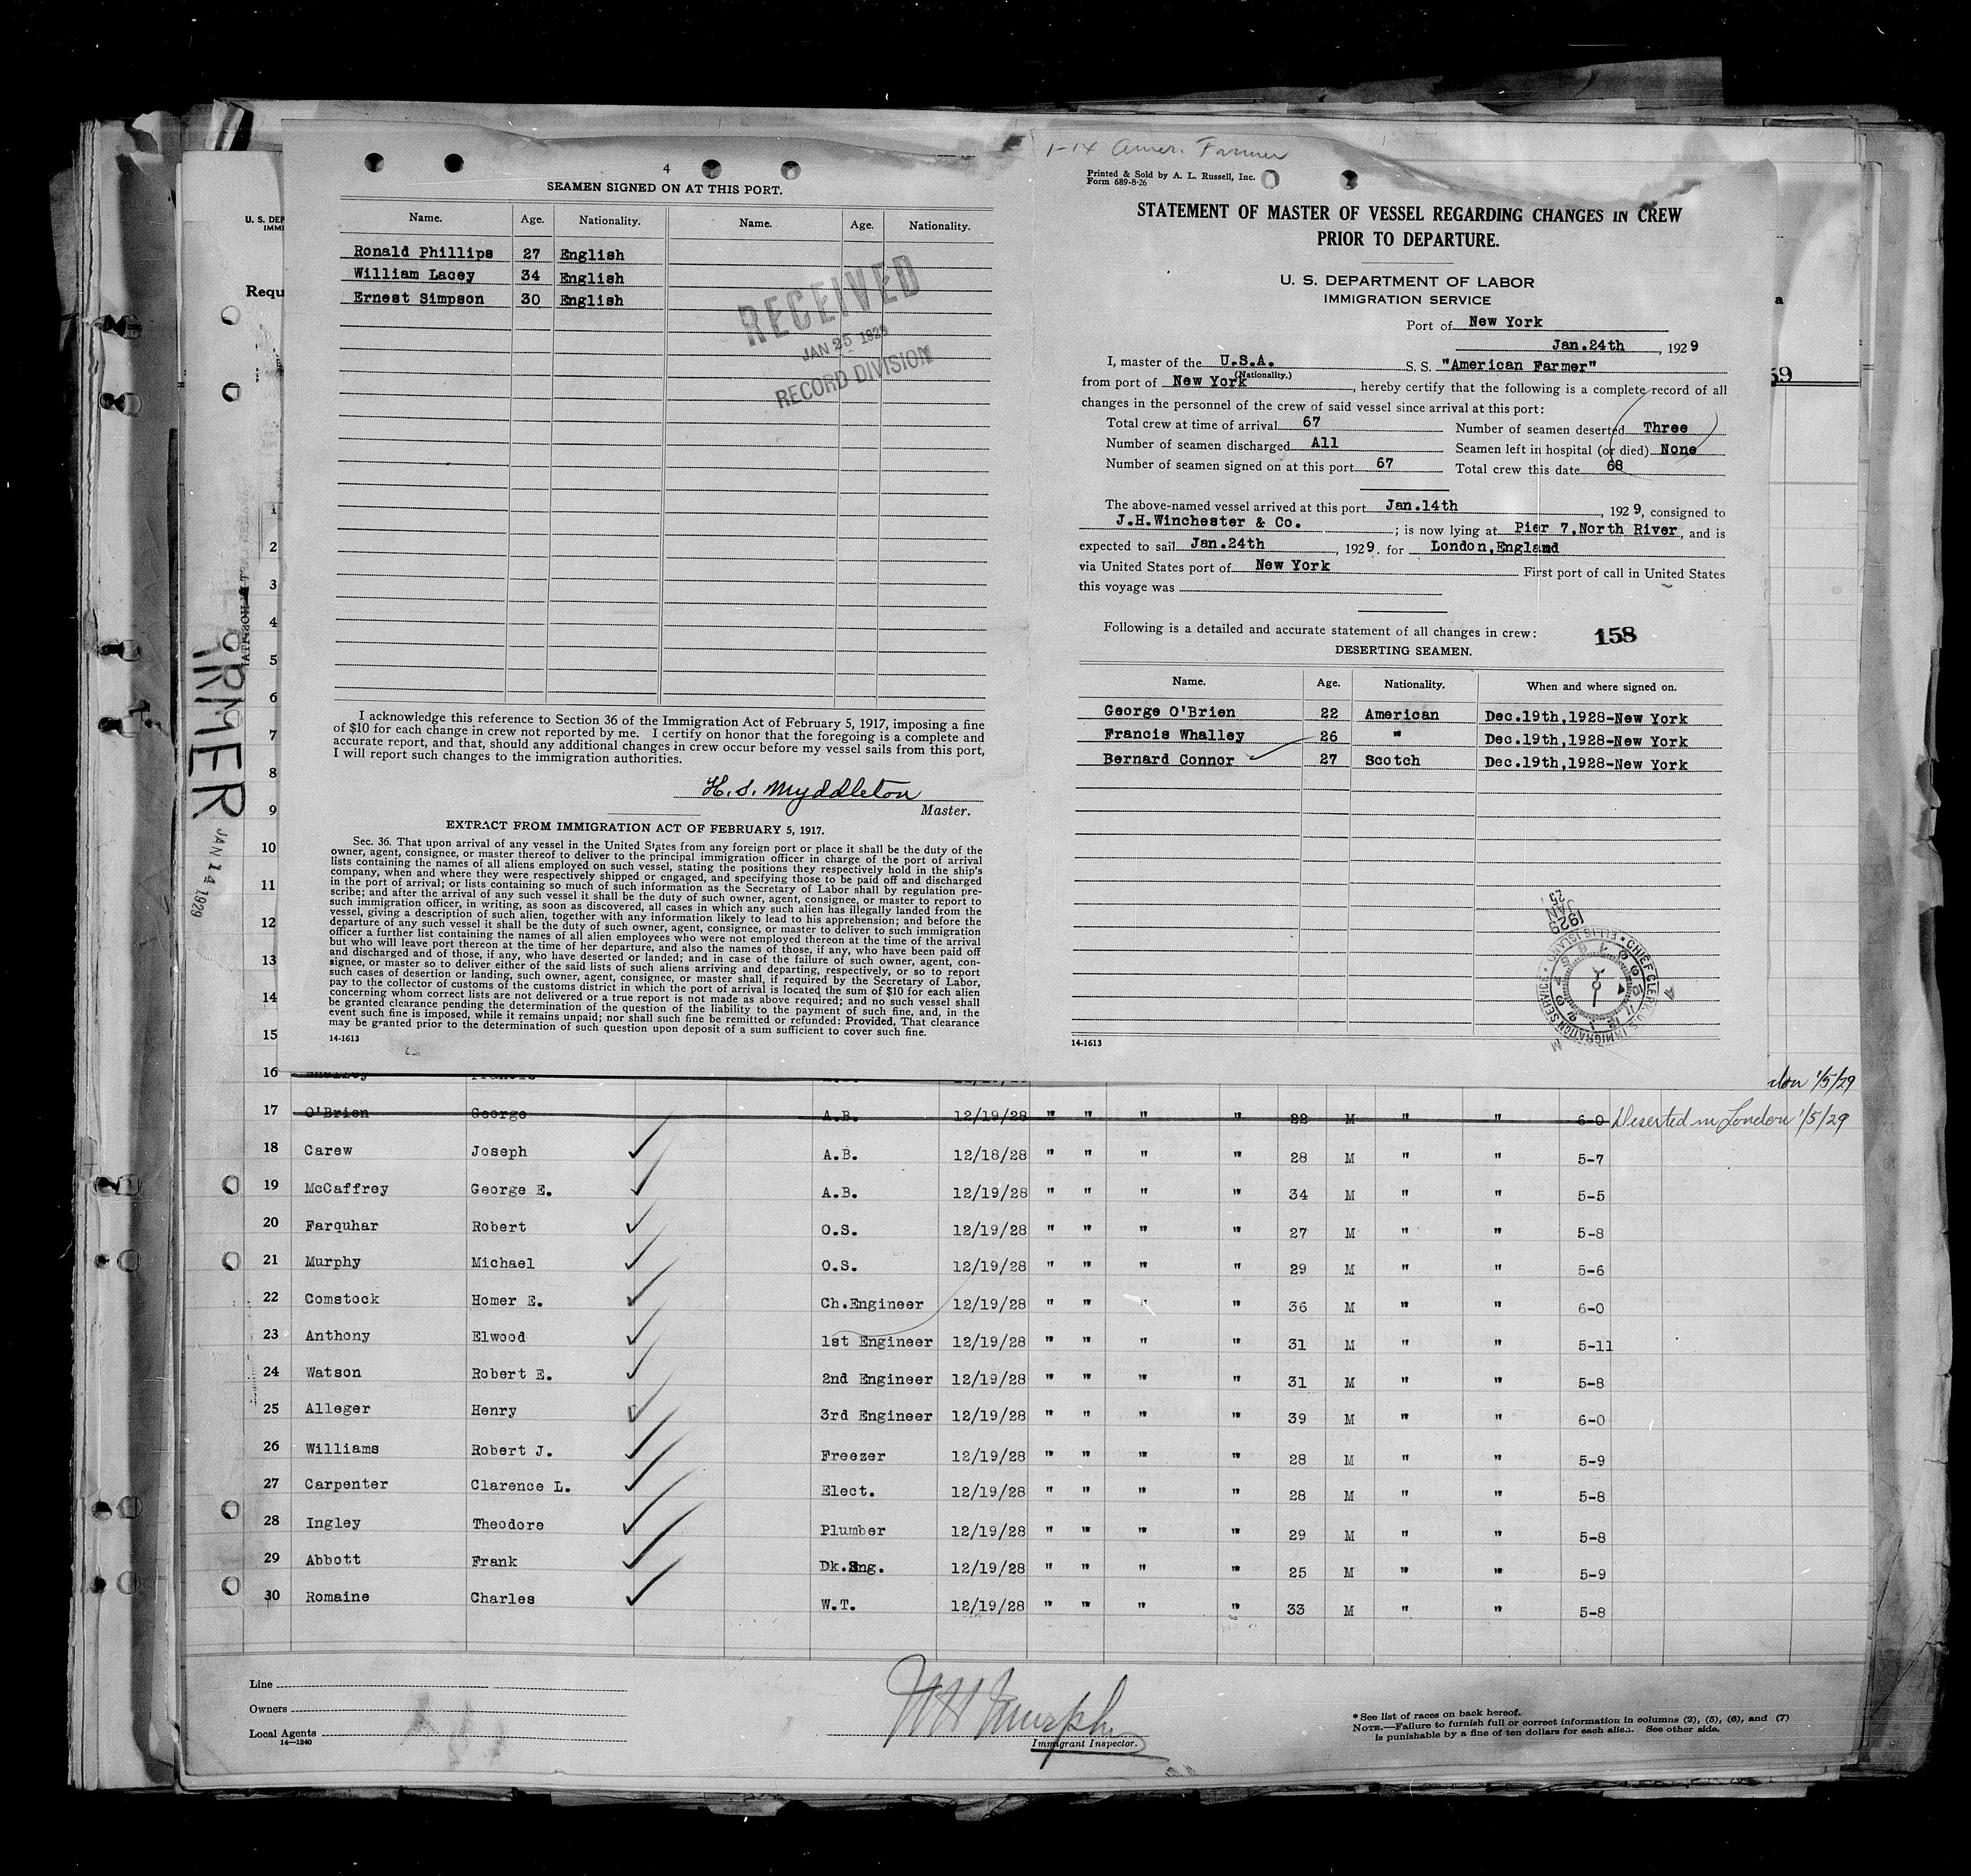 4
SEAMEN SIGNED ON AT THIS PORT.
Name. Age. Nationality. Name. Age. Nationality.
Ronald Phillips 27 English
William Lacey 34 English
Ernest Simpson 30 English
RECEIVED
JAN 25 1929
RECORD DIVISION
I acknowledge this reference to Section 36 of the Immigration Act of February 5, 1917, imposing a fine
of $10 for each change in crew not reported by me. I certify on honor that the foregoing is a complete and
accurate report, and that, should any additional changes in crew occur before my vessel sails from this port,
I will report such changes to the immigration authorities.
H. S. Myddleton
Master.
EXTRACT FROM IMMIGRATION ACT OF FEBRUARY 5, 1917.
Sec. 36. That upon arrival of any vessel in the United States from any foreign port or place it shall be the duty of the
owner, agent, consignee, or master thereof to deliver to the principal immigration officer in charge of the port of arrival
lists containing the names of all aliens employed on such vessel, stating the positions they respectively hold in the ship's
company, when and where they were respectively shipped or engaged, and specifying those to be paid off and discharged
in the port of arrival; or lists containing so much of such information as the Secretary of Labor shall by regulation pre-
scribe; and after the arrival of any such vessel it shall be the duty of such owner, agent, consignee, or master to report to
such immigration officer, in writing, as soon as discovered, all cases in which any such alien has illegally landed from the
vessel, giving a description of such alien, together with any information likely to lead to his apprehension; and before the
departure of any such vessel it shall be the duty of such owner, agent, consignee, or master to deliver to such immigration
officer a further list containing the names of all alien employees who were not employed thereon at the time of the arrival
but who will leave port thereon at the time of her departure, and also the names of those, if any, who have been paid off
and discharged and of those, if any, who have deserted or landed; and in case of the failure of such owner, agent, con-
signee, or master so to deliver either of the said lists of such aliens arriving and departing, respectively, or so to report
such cases of desertion or landing, such owner, agent, consignee, or master shall, if required by the Secretary of Labor,
pay to the collector of customs of the customs district in which the port of arrival is located the sum of $10 for each alien
concerning whom correct lists are not delivered or a true report is not made as above required; and no such vessel shall
be granted clearance pending the determination of the question of the liability to the payment of such fine, and, in the
event such fine is imposed, while it remains unpaid; nor shall such fine be remitted or refunded: Provided, That clearance
may be granted prior to the determination of such question upon deposit of a sum sufficient to cover such fine.
14-1613
1-14 Amer. Farmer
Printed & Sold by A. L. Russell, Inc.
Form 689-8-26
STATEMENT OF MASTER OF VESSEL REGARDING CHANGES IN CREW
PRIOR TO DEPARTURE.
U. S. DEPARTMENT OF LABOR
IMMIGRATION SERVICE
Port of New York
Jan.24th, 1929
I, master of the U.S.A. S. S. "American Farmer"
(Nationality.)
from port of New York, hereby certify that the following is a complete record of all
changes in the personnel of the crew of said vessel since arrival at this port:
Total crew at time of arrival 67 Number of seamen deserted Three
Number of seamen discharged All Seamen left in hospital (or died) None
Number of seamen signed on at this port 67 Total crew this date 68
The above-named vessel arrived at this port Jan.14th, 1929, consigned to
J.H.Winchester & Co.; is now lying at Pier 7,North River, and is
expected to sail Jan.24th, 1929. for London,England
via United States port of New York First port of call in United States
this voyage was
Following is a detailed and accurate statement of all changes in crew: 158
DESERTING SEAMEN.
Name. Age. Nationality. When and where signed on.
George O'Brien 22 American Dec.19th,1928-New York
Francis Whalley 26 " Dec.19th,1928-New York
Bernard Connor 27 Scotch Dec.19th,1928-New York
1929
JAN
25
CHIEF CLERK U.S. IMMIGRATION SERVICE ELLIS ISLAND
14-1613
U. S. DEP
IMMI
Requ
a
59
ARMER
JAN 14 1929
1
2
3
4
5
6
7
8
9
10
11
12
13
14
15
16 Whalley Francis 1/5/29
17 O'Brien George A.B. 12/19/28 " " " " 22 M " " 6-0 Deserted in London 1/5/29
18 Carew Joseph A.B. 12/18/28 " " " " 28 M " " 5-7
19 McCaffrey George E. A.B. 12/19/28 " " " " 34 M " " 5-5
20 Farquhar Robert O.S. 12/19/28 " " " " 27 M " " 5-8
21 Murphy Michael O.S. 12/19/28 " " " " 29 M " " 5-6
22 Comstock Homer E. Ch.Engineer 12/19/28 " " " " 36 M " " 6-0
23 Anthony Elwood 1st Engineer 12/19/28 " " " " 31 M " " 5-11
24 Watson Robert E. 2nd Engineer 12/19/28 " " " " 31 M " " 5-8
25 Alleger Henry 3rd Engineer 12/19/28 " " " " 39 M " " 6-0
26 Williams Robert J. Freezer 12/19/28 " " " " 28 M " " 5-9
27 Carpenter Clarence L. Elect. 12/19/28 " " " " 28 M " " 5-8
28 Ingley Theodore Plumber 12/19/28 " " " " 29 M " " 5-8
29 Abbott Frank Dk.Eng. 12/19/28 " " " " 25 M " " 5-9
30 Romaine Charles W.T. 12/19/28 " " " " 33 M " " 5-8
Line
Owners
Local Agents
14-1240
Murphy
Immigrant Inspector.
* See list of races on back hereof.
NOTE.—Failure to furnish full or correct information in columns (2), (5), (6), and (7)
is punishable by a fine of ten dollars for each alien. See other side.